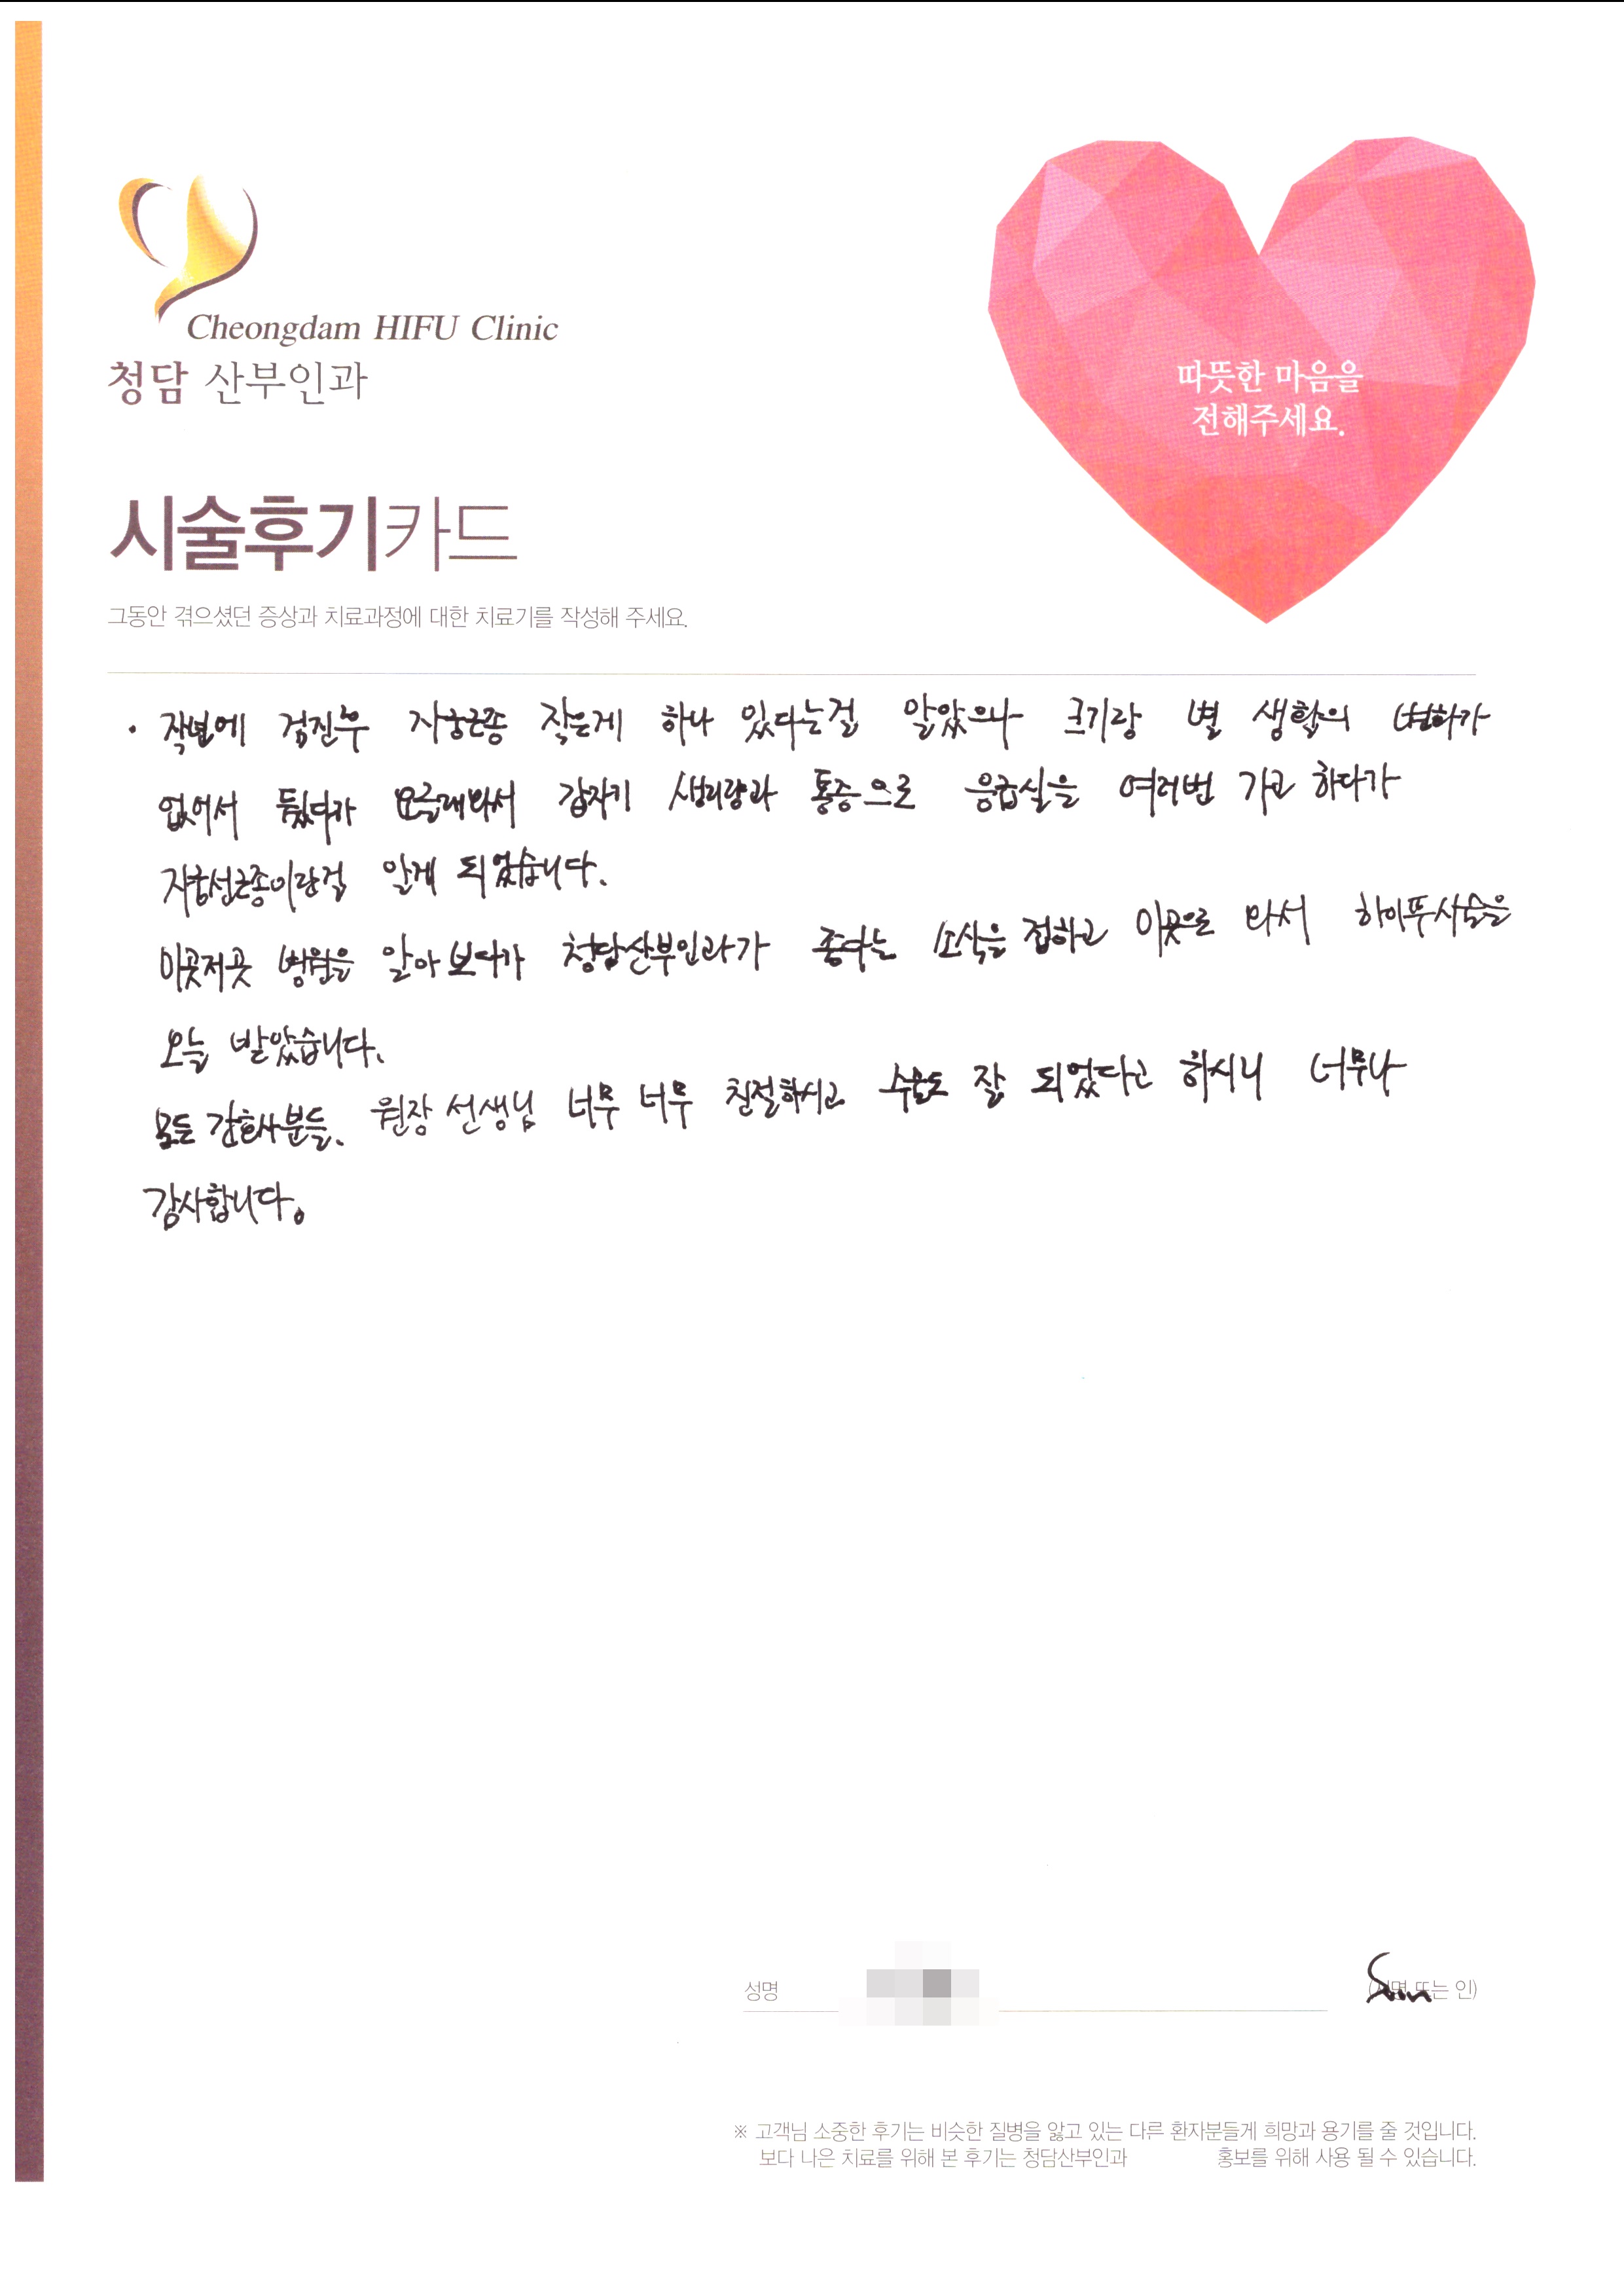 Cheongdam HIFU Clinic
청담 산부인과
따뜻한 마음을
전해주세요.
시술후기카드
그동안 겪으셨던 증상과 치료과정에 대한 치료기를 작성해 주세요.
· 작년에 검진후 자궁근종 작은게 하나 있다는걸 알았으나 크기랑 별 생활의 변화가
없어서 뒀다가 요근래와서 갑자기 생리량과 통증으로 응급실을 여러번 가고 하다가
자궁선근종이란걸 알게 되었습니다.
이곳저곳 병원을 알아보다가 청담산부인과가 좋다는 소식을 접하고 이곳으로 와서 하이푸시술을
오늘 받았습니다.
모든 간호사분들. 원장 선생님 너무 너무 친절하시고 수술도 잘 되었다고 하시니 너무나
감사합니다.
성명 (서명 또는 인)
※ 고객님 소중한 후기는 비슷한 질병을 앓고 있는 다른 환자분들게 희망과 용기를 줄 것입니다.
보다 나은 치료를 위해 본 후기는 청담산부인과 홍보를 위해 사용 될 수 있습니다.